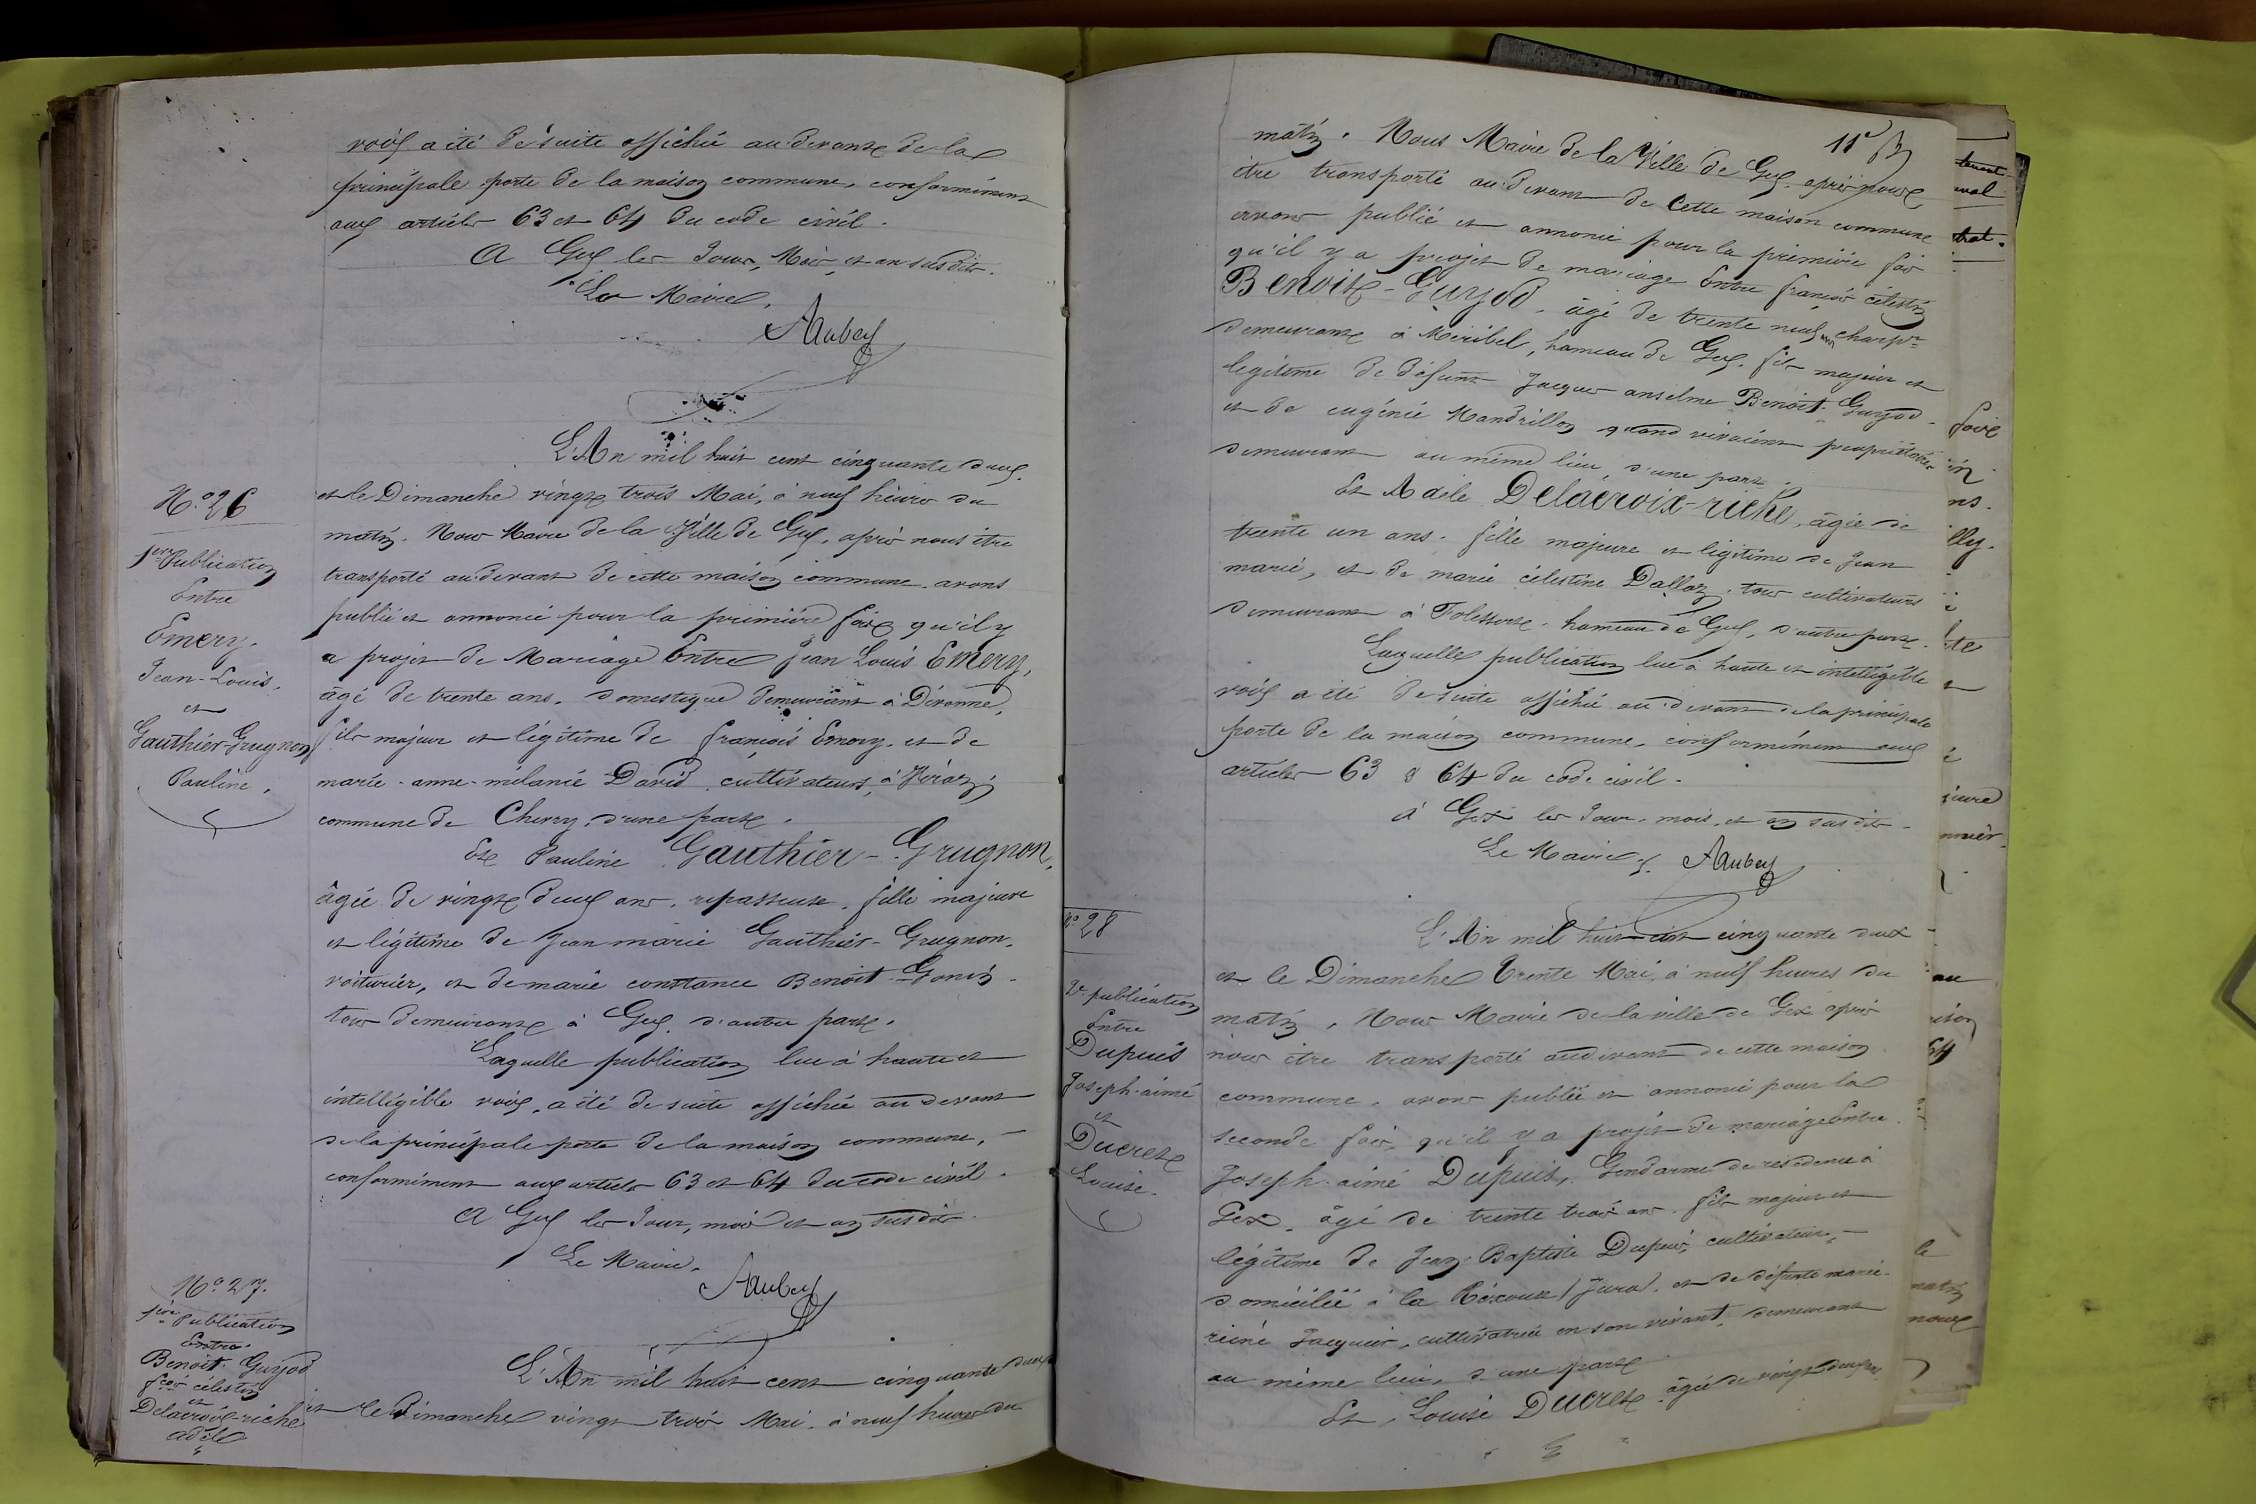 voix a été de suite affiché au devant de la
principale porte de la maison commune, conformément
aux articles 63 et 64 du code civil.
A Gex les Jour, Mois, et an susdits.
Le Maire,
Aubey
N.° 26
1ere Publication
Entre
Emery,
Jean-Louis,
et
Gauthier-Grugnon
Pauline,
L'An mil huit cent cinquante deux,
et le Dimanche vingt trois Mai, à neuf heures du
matin. Nous Maire de la Ville de Gex, après nous être
transporté au devant de cette maison commune avons
publié et annoncé pour la première fois qu'il y
a projet de Mariage Entre Jean Louis Emery,
âgé de trente ans, domestique demeurant à Divonne,
fils majeur et légitime de françois Emery, et de
marie-anne-mélanie David, cultivateurs, à
commune de d'une part.
Et Pauline Gauthier-Grugnon,
âgée de vingt deux ans, repasseuse, fille majeure
et légitime de Jean marie Gauthier-Grugnon,
voiturier, et de marie constance Benoit-Gonin
tous demeurant à Gex, d'autre part.
Laquelle publication lue à haute et
intelligible voix, a été de suite affiché au devant
de la principale porte de la maison commune,
conformément aux articles 63 et 64 du code civil.
A Gex les Jour, mois et an susdits.
Le Maire.
Aubey
N.° 27.
1ère Publication
Entre
Benoit-Guyod
fcois célestin
et
Delacroix-riche
adèle
L'An mil huit cent cinquante deux
et le Dimanche vingt trois Mai, à neuf heures du
11e
matin. Nous Maire de la Ville de Gex, après nous
être transporté au devant de Cette maison commune
avons publié et annoncé pour la première fois
qu'il y a projet de mariage Entre françois célestin
Benoit-Guyod, âgé de trente neuf ans charpr
demeurant à Méribel, hameau de Gex, fils majeur et
légitime de défunt Jacques anselme Benoit-Guyod
et de eugénie Mandrillon quand vivaient propriétaires
demeurant au même lieu d'une part.
Et Adèle Delacroix-riche, âgée de
trente un ans, fille majeure et légitime de Jean
marie, et de marie célestine Dalloz, tous cultivateurs
demeurant à hameau de Gex, d'autre part.
Laquelle publication lue à haute et intelligible
voix a été de suite affiché au devant de la principale
porte de la maison commune, conformément aux
articles 63 & 64 du code civil.
A Gex les Jour, mois, et an susdits
Le Maire, Aubey
N.° 28
2e publication
Entre
Dupuis
Joseph-aimé
et
Ducret
Louise.
L'An mil huit cent cinquante deux
et le Dimanche trente Mai, à neuf heures du
matin, Nous Maire de la ville de Gex après
nous être transporté au devant de cette maison
commune, avons publié et annoncé pour la
seconde fois, qu'il y a projet de mariage Entre
Joseph-aimé Dupuis, Gendarme de résidence à
Gex, âgé de trente trois ans, fils majeur et
légitime de Jean-Baptiste Dupuis, cultivateur,
domicilié à la Rixouse (Jura), et de défunte marie-
reine Jacquier, cultivatrice en son vivant, demeurant
au même lieu, d'une part
Et, Louise Ducret, âgée de vingt deux ans,